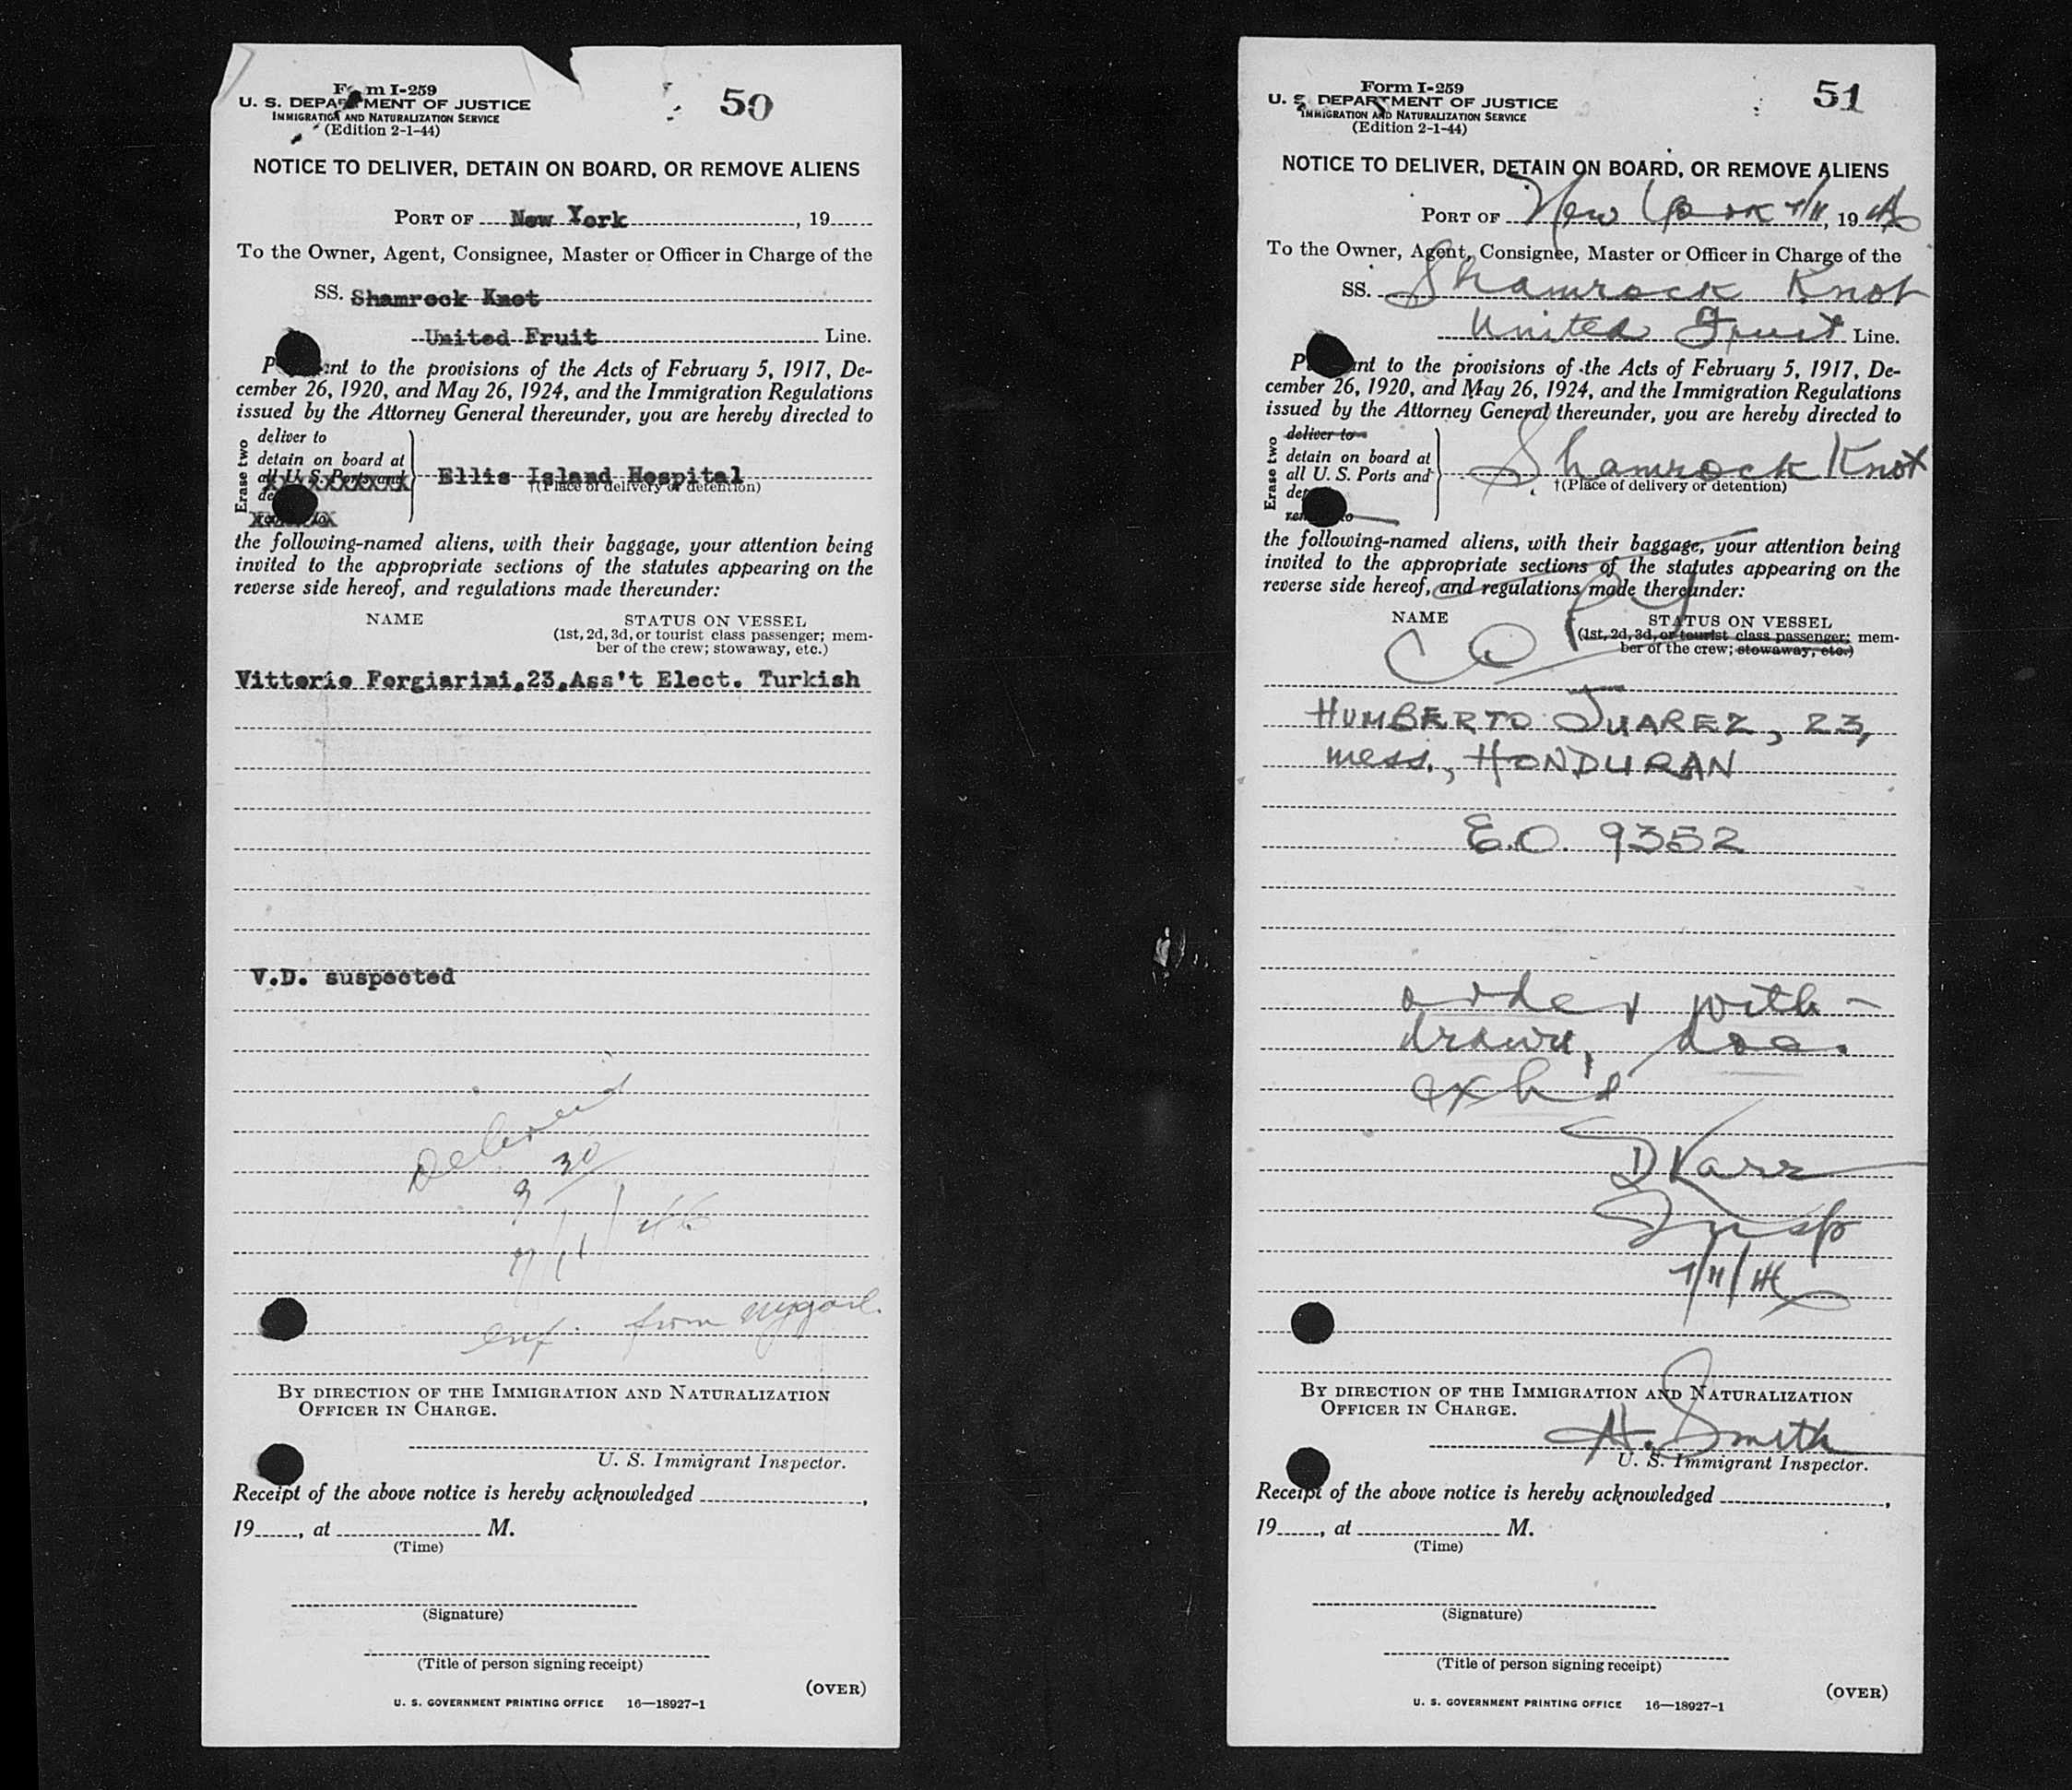 Form I-259
U. S. DEPARTMENT OF JUSTICE
IMMIGRATION AND NATURALIZATION SERVICE
(Edition 2-1-44)
50
NOTICE TO DELIVER, DETAIN ON BOARD, OR REMOVE ALIENS
PORT OF New York, 19
To the Owner, Agent, Consignee, Master or Officer in Charge of the
SS. Shamrock Knot
United Fruit Line.
P nt to the provisions of the Acts of February 5, 1917, De-
cember 26, 1920, and May 26, 1924, and the Immigration Regulations
issued by the Attorney General thereunder, you are hereby directed to
Erase two
deliver to
detain on board at
all U. S. Ports and
de
Ellis Island Hospital
†(Place of delivery or detention)
the following-named aliens, with their baggage, your attention being
invited to the appropriate sections of the statutes appearing on the
reverse side hereof, and regulations made thereunder:
NAME STATUS ON VESSEL
(1st, 2d, 3d, or tourist class passenger; mem-
ber of the crew; stowaway, etc.)
Vittorio Forgiarini,23,Ass't Elect. Turkish
V.D. suspected
Delivered
9 30
7/11/46
from
BY DIRECTION OF THE IMMIGRATION AND NATURALIZATION
OFFICER IN CHARGE.
U. S. Immigrant Inspector.
Receipt of the above notice is hereby acknowledged ,
19 , at M.
(Time)
(Signature)
(Title of person signing receipt)
(OVER)
U. S. GOVERNMENT PRINTING OFFICE 16—18927-1
Form I-259
U. S. DEPARTMENT OF JUSTICE
IMMIGRATION AND NATURALIZATION SERVICE
(Edition 2-1-44)
51
NOTICE TO DELIVER, DETAIN ON BOARD, OR REMOVE ALIENS
PORT OF New York 7/11, 19 46
To the Owner, Agent, Consignee, Master or Officer in Charge of the
SS. Shamrock Knot
United Fruit Line.
P nt to the provisions of the Acts of February 5, 1917, De-
cember 26, 1920, and May 26, 1924, and the Immigration Regulations
issued by the Attorney General thereunder, you are hereby directed to
Erase two
deliver to
detain on board at
all U. S. Ports and
de
Shamrock Knot
†(Place of delivery or detention)
the following-named aliens, with their baggage, your attention being
invited to the appropriate sections of the statutes appearing on the
reverse side hereof, and regulations made thereunder:
NAME STATUS ON VESSEL
(1st, 2d, 3d, or tourist class passenger; mem-
ber of the crew; stowaway, etc.)
COPY
HUMBERTO JUAREZ, 23,
mess., HONDURAN
E.O. 9352
order with-
drawn, doc.
exh'd
D Karr
Insp
7/11/46
BY DIRECTION OF THE IMMIGRATION AND NATURALIZATION
OFFICER IN CHARGE.
H. Smith
U. S. Immigrant Inspector.
Receipt of the above notice is hereby acknowledged ,
19 , at M.
(Time)
(Signature)
(Title of person signing receipt)
(OVER)
U. S. GOVERNMENT PRINTING OFFICE 16—18927-1